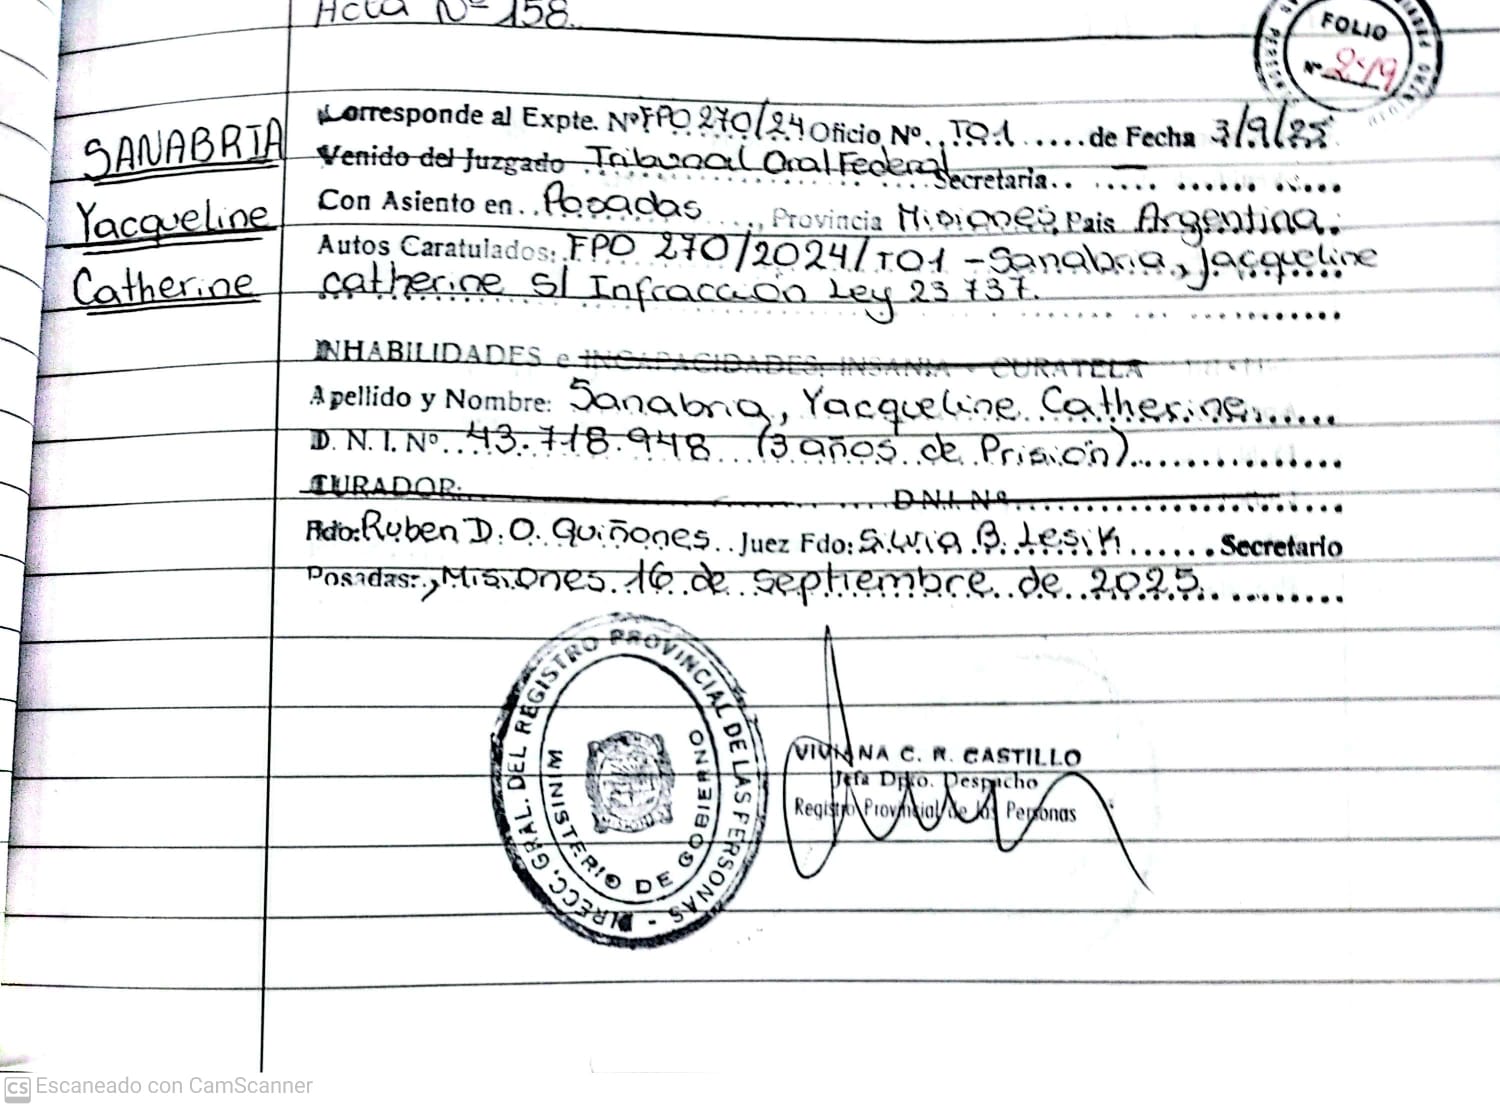 Acta Nº 158.
FOLIO
Nº 219
SANABRIA
Yacqueline
Catherine
Corresponde al Expte. Nº FPO 270/24 Oficio Nº. TO1 ..... de Fecha 3/9/25
Venido del Juzgado Tribunal Oral Federal Secretaria.. —
Con Asiento en.. Posadas ...., Provincia Misiones, Pais Argentina.
Autos Caratulados: FPO 270/2024/TO1 - Sanabria, Jacqueline
catherine s/ Infracción Ley 23737.
INHABILIDADES e INCAPACIDADES: INSANIA - CURATELA
Apellido y Nombre: Sanabria, Yacqueline Catherine......
D. N. I. Nº ...43.718.948 (3 años de Prisión)..............
CURADOR: D.N.I. Nº
Fdo: Ruben D. O. Quiñones.. Juez Fdo: Silvia B. Lesik ...... Secretario
Posadas:., Misiones 16 de septiembre de 2025. ........
DIRECC. GRAL. DEL REGISTRO PROVINCIAL DE LAS PERSONAS -
MINISTERIO DE GOBIERNO
VIVIANA C. R. CASTILLO
Jefa Dpto. Despacho
Registro Provincial de las Personas
CS Escaneado con CamScanner